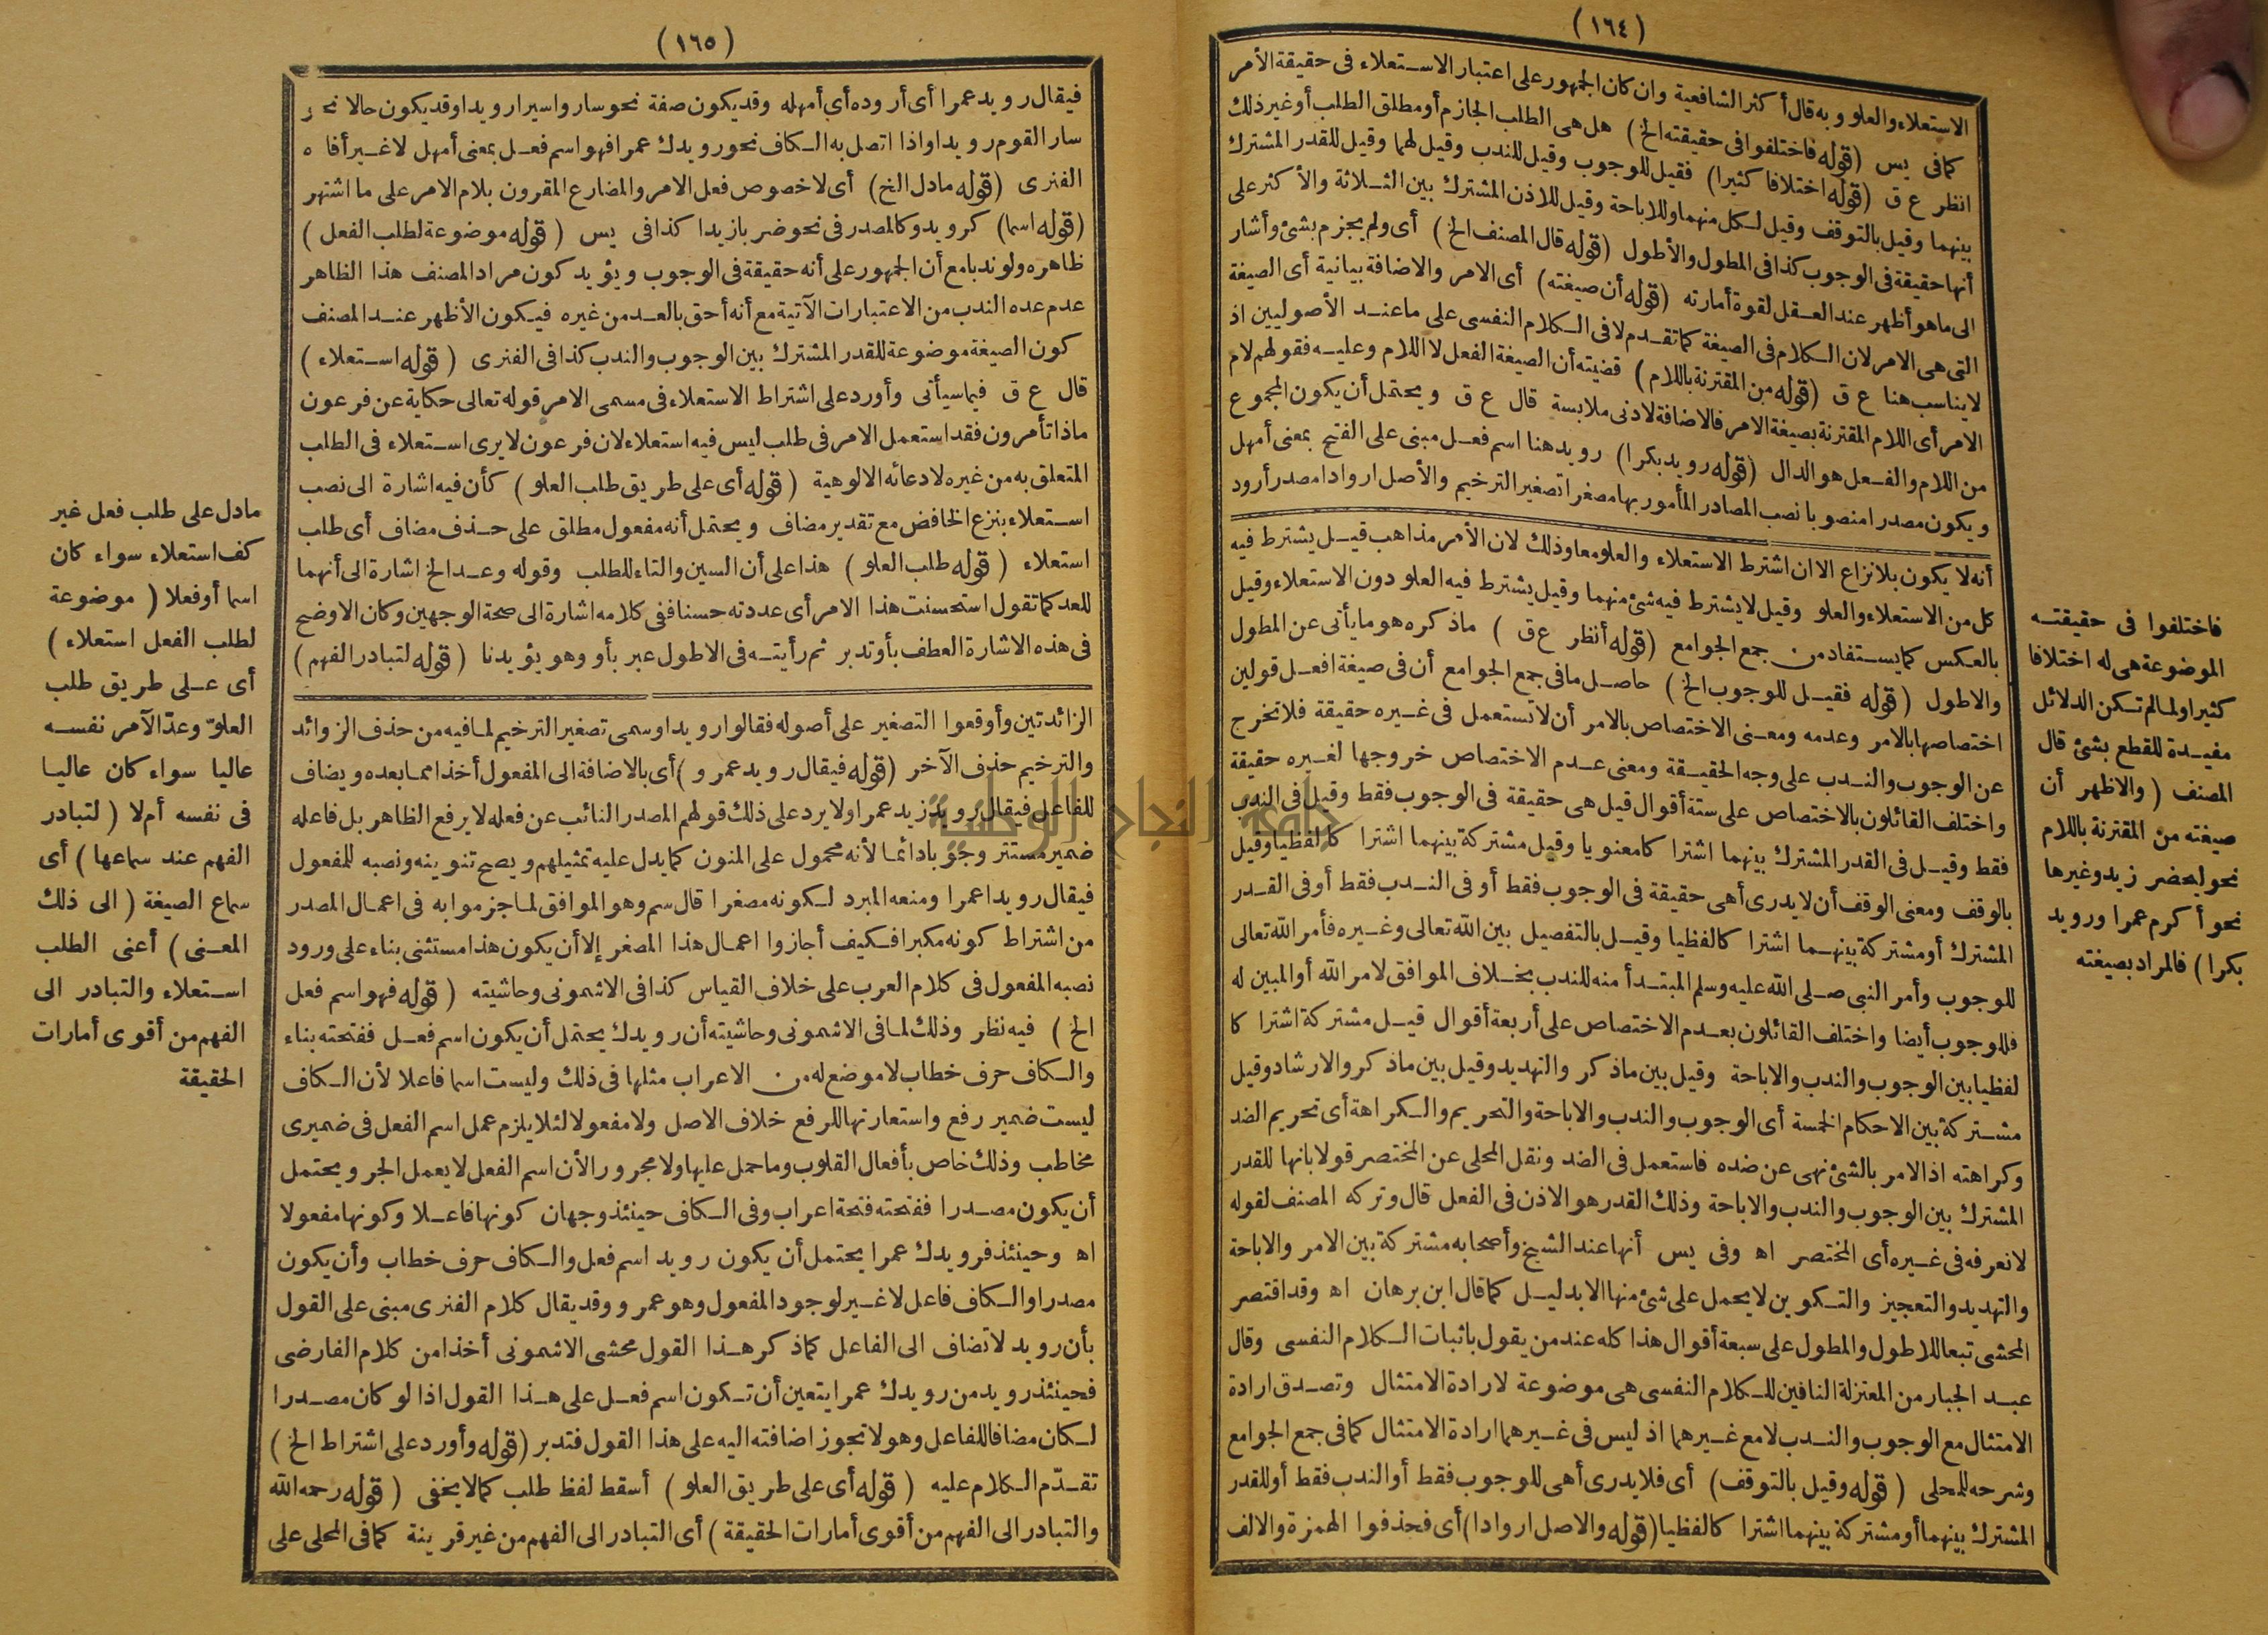 (١٦٤)
الاستعلاء والعلو وبه قال أكثر الشافعية وان كان الجمهور على اعتبار الاستعلاء فى حقيقة الأمر
كما فى يس (قوله فاختلفوا فى حقيقته الخ) هل هى الطلب الجازم أو مطلق الطلب أو غير ذلك
انظر ع ق (قوله اختلافا كثيرا) فقيل للوجوب وقيل للندب وقيل لهما وقيل للقدر المشترك
بينهما وقيل بالتوقف وقيل لكل منهما وللاباحة وقيل للاذن المشترك بين الثلاثة والأكثر على
أنها حقيقة فى الوجوب كذا فى المطول والأطول (قوله قال المصنف الخ) أى ولم يجزم بشئ وأشار
الى ما هو أظهر عند العقل لقوة أمارته (قوله أن صيغته) أى الامر والاضافة بيانية أى الصيغة
التى هى الامر لان الكلام فى الصيغة كما تقدم لا فى الكلام النفسى على ما عند الأصوليين اذ
لا يناسب هنا ع ق (قوله من المقترنة باللام) قضيته أن الصيغة الفعل لا اللام وعليه فقولهم لام
الامر أى اللام المقترنة بصيغة الامر فالاضافة لادنى ملابسة قال ع ق ويحتمل أن يكون المجموع
من اللام والفعل هو الدال (قوله رويد بكرا) رويد هنا اسم فعل مبنى على الفتح بمعنى أمهل
ويكون مصدرا منصوبا نصب المصادر المأمور بها مصغرا تصغير الترخيم والأصل اروادا مصدر أرود
أنه لا يكون بلا نزاع الا ان اشترط الاستعلاء والعلو معا وذلك لان الأمر مذاهب قيل يشترط فيه
كل من الاستعلاء والعلو وقيل لا يشترط فيه شئ منهما وقيل يشترط فيه العلو دون الاستعلاء وقيل
بالعكس كما يستفاد من جمع الجوامع (قوله أنظر ع ق) ماذكره هو ما يأتى عن المطول
والاطول (قوله فقيل للوجوب الخ) حاصل ما فى جمع الجوامع أن فى صيغة افعل قولين
اختصاصها بالامر وعدمه ومعنى الاختصاص بالامر أن لا تستعمل فى غيره حقيقة فلا تخرج
عن الوجوب والندب على وجه الحقيقة ومعنى عدم الاختصاص خروجها لغيره حقيقة
واختلف القائلون بالاختصاص على ستة أقوال قيل هى حقيقة فى الوجوب فقط وقيل فى الندب
فقط وقيل فى القدر المشترك بينهما اشتراكا معنويا وقيل مشتركة بينهما اشتراكا لفظيا وقيل
بالوقف ومعنى الوقف أن لا يدرى أهى حقيقة فى الوجوب فقط أو فى الندب فقط أو فى القدر
المشترك أو مشتركة بينهما اشتراكا لفظيا وقيل بالتفصيل بين الله تعالى وغيره فأمر الله تعالى
للوجوب وأمر النبى صلى الله عليه وسلم المبتدأ منه للندب بخلاف الموافق لامر الله أو المبين له
فللوجوب أيضا واختلف القائلون بعدم الاختصاص على أربعة أقوال قيل مشتركة اشتراكا
لفظيا بين الوجوب والندب والاباحة وقيل بين ماذكر والتهديد وقيل بين ماذكر والارشاد وقيل
مشتركة بين الاحكام الخمسة أى الوجوب والندب والاباحة والتحريم والكراهة أى تحريم الضد
وكراهته اذ الامر بالشئ نهى عن ضده فاستعمل فى الضد ونقل المحلى عن المختصر قولا بانها للقدر
المشترك بين الوجوب والندب والاباحة وذلك القدر هو الاذن فى الفعل قال وتركه المصنف لقوله
لا نعرفه فى غيره أى المختصر اه وفى يس أنها عند الشيخ وأصحابه مشتركة بين الامر والاباحة
والتهديد والتعجيز والتكوين لا يحمل على شئ منها الا بدليل كما قال ابن برهان اه وقد اقتصر
المحشى تبعا للاطول والمطول على سبعة أقوال هذا كله عند من يقول باثبات الكلام النفسى وقال
عبد الجبار من المعتزلة النافين للكلام النفسى هى موضوعة لارادة الامتثال وتصدق ارادة
الامتثال مع الوجوب والندب لا مع غيرهما اذ ليس فى غيرهما ارادة الامتثال كما فى جمع الجوامع
وشرحه للمحلى (قوله وقيل بالتوقف) أى فلا يدرى أهى للوجوب فقط أو الندب فقط أو للقدر
المشترك بينهما أو مشتركة بينهما اشتراكا لفظيا (قوله والاصل اروادا) أى فحذفوا الهمزة والالف
فاختلفوا فى حقيقته
الموضوعة هى له اختلافا
كثيرا ولما لم تكن الدلائل
مفيدة للقطع بشئ قال
المصنف (والاظهر أن
صيغته من المقترنة باللام
نحو ليحضر زيد وغيرها
نحو أكرم عمرا ورويد
بكرا) فالمراد بصيغته
(١٦٥)
فيقال رويد عمرا أى أروده أى أمهله وقد يكون صفة نحو ساروا سيرا رويدا وقد يكون حالا نحو
سار القوم رويدا واذا اتصل به الكاف نحو رويدك عمرا فهو اسم فعل بمعنى أمهل لا غير أفاده
الفنرى (قوله مادل الخ) أى لا خصوص فعل الامر والمضارع المقرون بلام الامر على ما اشتهر
(قوله اسما) كرويد وكالمصدر فى نحو ضربا زيدا كذا فى يس (قوله موضوعة لطلب الفعل)
ظاهره ولو ندبا مع أن الجمهور على أنه حقيقة فى الوجوب ويؤيد كون مراد المصنف هذا الظاهر
عدم عده الندب من الاعتبارات الآتية مع أنه أحق بالعد من غيره فيكون الأظهر عند المصنف
كون الصيغة موضوعة للقدر المشترك بين الوجوب والندب كذا فى الفنرى (قوله استعلاء)
قال ع ق فيما سيأتى وأورد على اشتراط الاستعلاء فى مسمى الامر قوله تعالى حكاية عن فرعون
ماذا تأمرون فقد استعمل الامر فى طلب ليس فيه استعلاء لان فرعون لا يرى استعلاء فى الطلب
المتعلق به من غيره لادعائه الالوهية (قوله أى على طريق طلب العلو) كأن فيه اشارة الى نصب
استعلاء بنزع الخافض مع تقدير مضاف ويحتمل أنه مفعول مطلق على حذف مضاف أى طلب
استعلاء (قوله طلب العلو) هذا على أن السين والتاء للطلب وقوله وعد الخ اشارة الى أنهما
للعد كما تقول استحسنت هذا الامر أى عددته حسنا ففى كلامه اشارة الى صحة الوجهين وكان الاوضح
فى هذه الاشارة العطف بأو تدبر ثم رأيته فى الاطول عبر بأو وهو يؤيدنا (قوله لتبادر الفهم)
الزائدتين وأوقعوا التصغير على أصوله فقالوا رويدا وسمى تصغير الترخيم لما فيه من حذف الزوائد
والترخيم حذف الآخر (قوله فيقال رويد عمرو) أى بالاضافة الى المفعول أخذا مما بعده ويضاف
للفاعل فيقال رويد زيد عمرا ولا يرد على ذلك قولهم المصدر النائب عن فعله لا يرفع الظاهر بل فاعله
ضمير مستتر وجوبا دائما لأنه محمول على المنون كما يدل عليه تمثيلهم ويصح تنوينه ونصبه للمفعول
فيقال رويدا عمرا ومنعه المبرد لكونه مصغرا قال سم وهو الموافق لما جزموا به فى اعمال المصدر
من اشتراط كونه مكبرا فكيف أجازوا اعمال هذا المصغر إلا أن يكون هذا مستثنى بناء على ورود
نصبه المفعول فى كلام العرب على خلاف القياس كذا فى الاشمونى وحاشيته (قوله فهو اسم فعل
الخ) فيه نظر وذلك لما فى الاشمونى وحاشيته أن رويدك يحتمل أن يكون اسم فعل ففتحته بناء
والكاف حرف خطاب لا موضع له من الاعراب مثلها فى ذلك وليست اسما فاعلا لأن الكاف
ليست ضمير رفع واستعارتها للرفع خلاف الاصل ولا مفعولا لئلا يلزم عمل اسم الفعل فى ضميرى
مخاطب وذلك خاص بأفعال القلوب وما حمل عليها ولا مجرورا لأن اسم الفعل لا يعمل الجر ويحتمل
أن يكون مصدرا ففتحته فتحة اعراب وفى الكاف حينئذ وجهان كونها فاعلا وكونها مفعولا
اه وحينئذ فرويدك عمرا يحتمل أن يكون رويد اسم فعل والكاف حرف خطاب وأن يكون
مصدرا والكاف فاعل لا غير لوجود المفعول وهو عمرو وقد يقال كلام الفنرى مبنى على القول
بأن رويد لا تضاف الى الفاعل كما ذكر هذا القول محشى الاشمونى أخذا من كلام الفارضى
فحينئذ رويد من رويدك عمرا يتعين أن تكون اسم فعل على هذا القول اذ لو كان مصدرا
لكان مضافا للفاعل وهو لا تجوز اضافته اليه على هذا القول فتدبر (قوله وأورد على اشتراط الخ)
تقدّم الكلام عليه (قوله أى على طريق العلو) أسقط لفظ طلب كما لا يخفى (قوله رحمه الله
والتبادر الى الفهم من أقوى أمارات الحقيقة) أى التبادر الى الفهم من غير قرينة كما فى المحلى على
مادل على طلب فعل غير
كف استعلاء سواء كان
اسما أو فعلا (موضوعة
لطلب الفعل استعلاء)
أى على طريق طلب
العلوّ وعدّ الآمر نفسه
عاليا سواء كان عاليا
فى نفسه أم لا (لتبادر
الفهم عند سماعها) أى
سماع الصيغة (الى ذلك
المعنى) أعنى الطلب
استعلاء والتبادر الى
الفهم من أقوى أمارات
الحقيقة
جامعة النجاح الوطنية